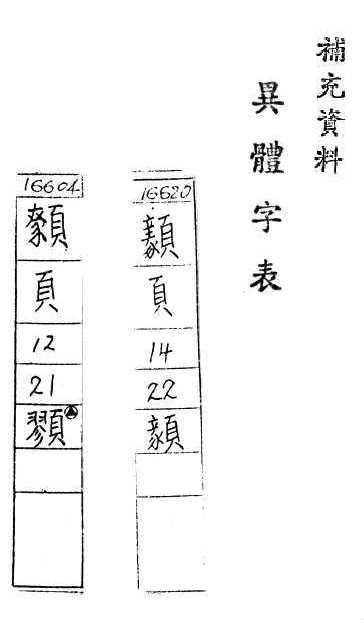 補充資料
異體字表
16620
頁
14
22
16604
頁
12
21
顟